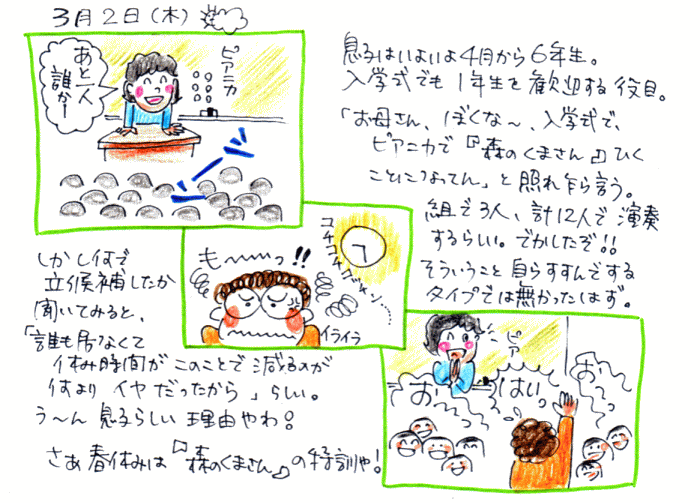 3月2日(木)
ピアニカ
あと一人
誰かー
息子はいよいよ4月から6年生。
入学式でも1年生を歓迎する役目。
「お母さん、ぼくな〜、入学式で、
ピアニカで『森のくまさん』ひく
ことになってん」と照れ乍ら言う。
組で3人、計12人で演奏
するらしい。でかしたぞ!!
そういうこと自らすすんでする
タイプでは無かったはず。
コチコチコチ
も〜〜っ!!
イライラ
しかし何で
立候補したか
聞いてみると、
「誰も居なくて
休み時間がこのことで減るのが
何よりイヤだったから」らしい。
う〜ん見るらしい理由やわ。
さぁ春休みは『森のくまさん』の特訓や!
ピア
お
はいっ
お